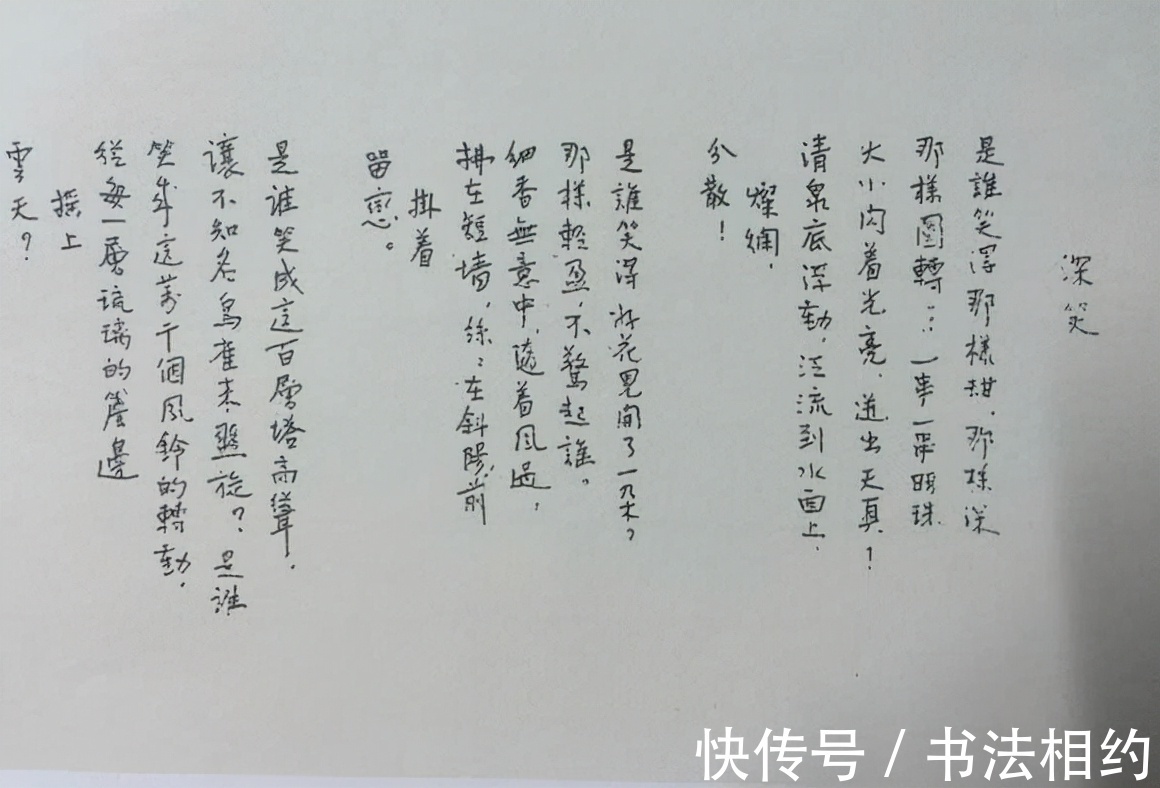 深笑
是誰笑得那樣甜，那樣深
那樣圓轉：：一串一串明珠
大小闪着光亮，迸出天真！
清泉底浮動，泛流到水面上，
燦爛，
分散！
是誰笑得好花兒開了一朵？
那樣輕盈，不驚起誰。
細香無意中，隨着風過，
拂在短墻，絲：在斜陽前
掛着
留戀。
是谁笑成這百層塔高聳，
讓不知名鳥雀来盤旋？是誰
笑成這萬千個風鈴的轉動，
從每一層琉璃的簷邊
摇上
雲天？
快传号 / 书法相约